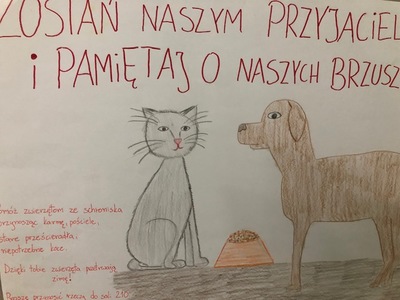 ZOSTAŃ NASZYM PRZYJACIEL
i PAMIĘTAJ O NASZYCH BRZUSZ
omóż zwierzętom ze schroniska
przynosząc karmę, pościele,
stare prześcieradła,
niepotrzebne koce.
Dzięki tobie zwierzęta przetrwają
zimę!
Proszę przynosić rzeczy do sali 210